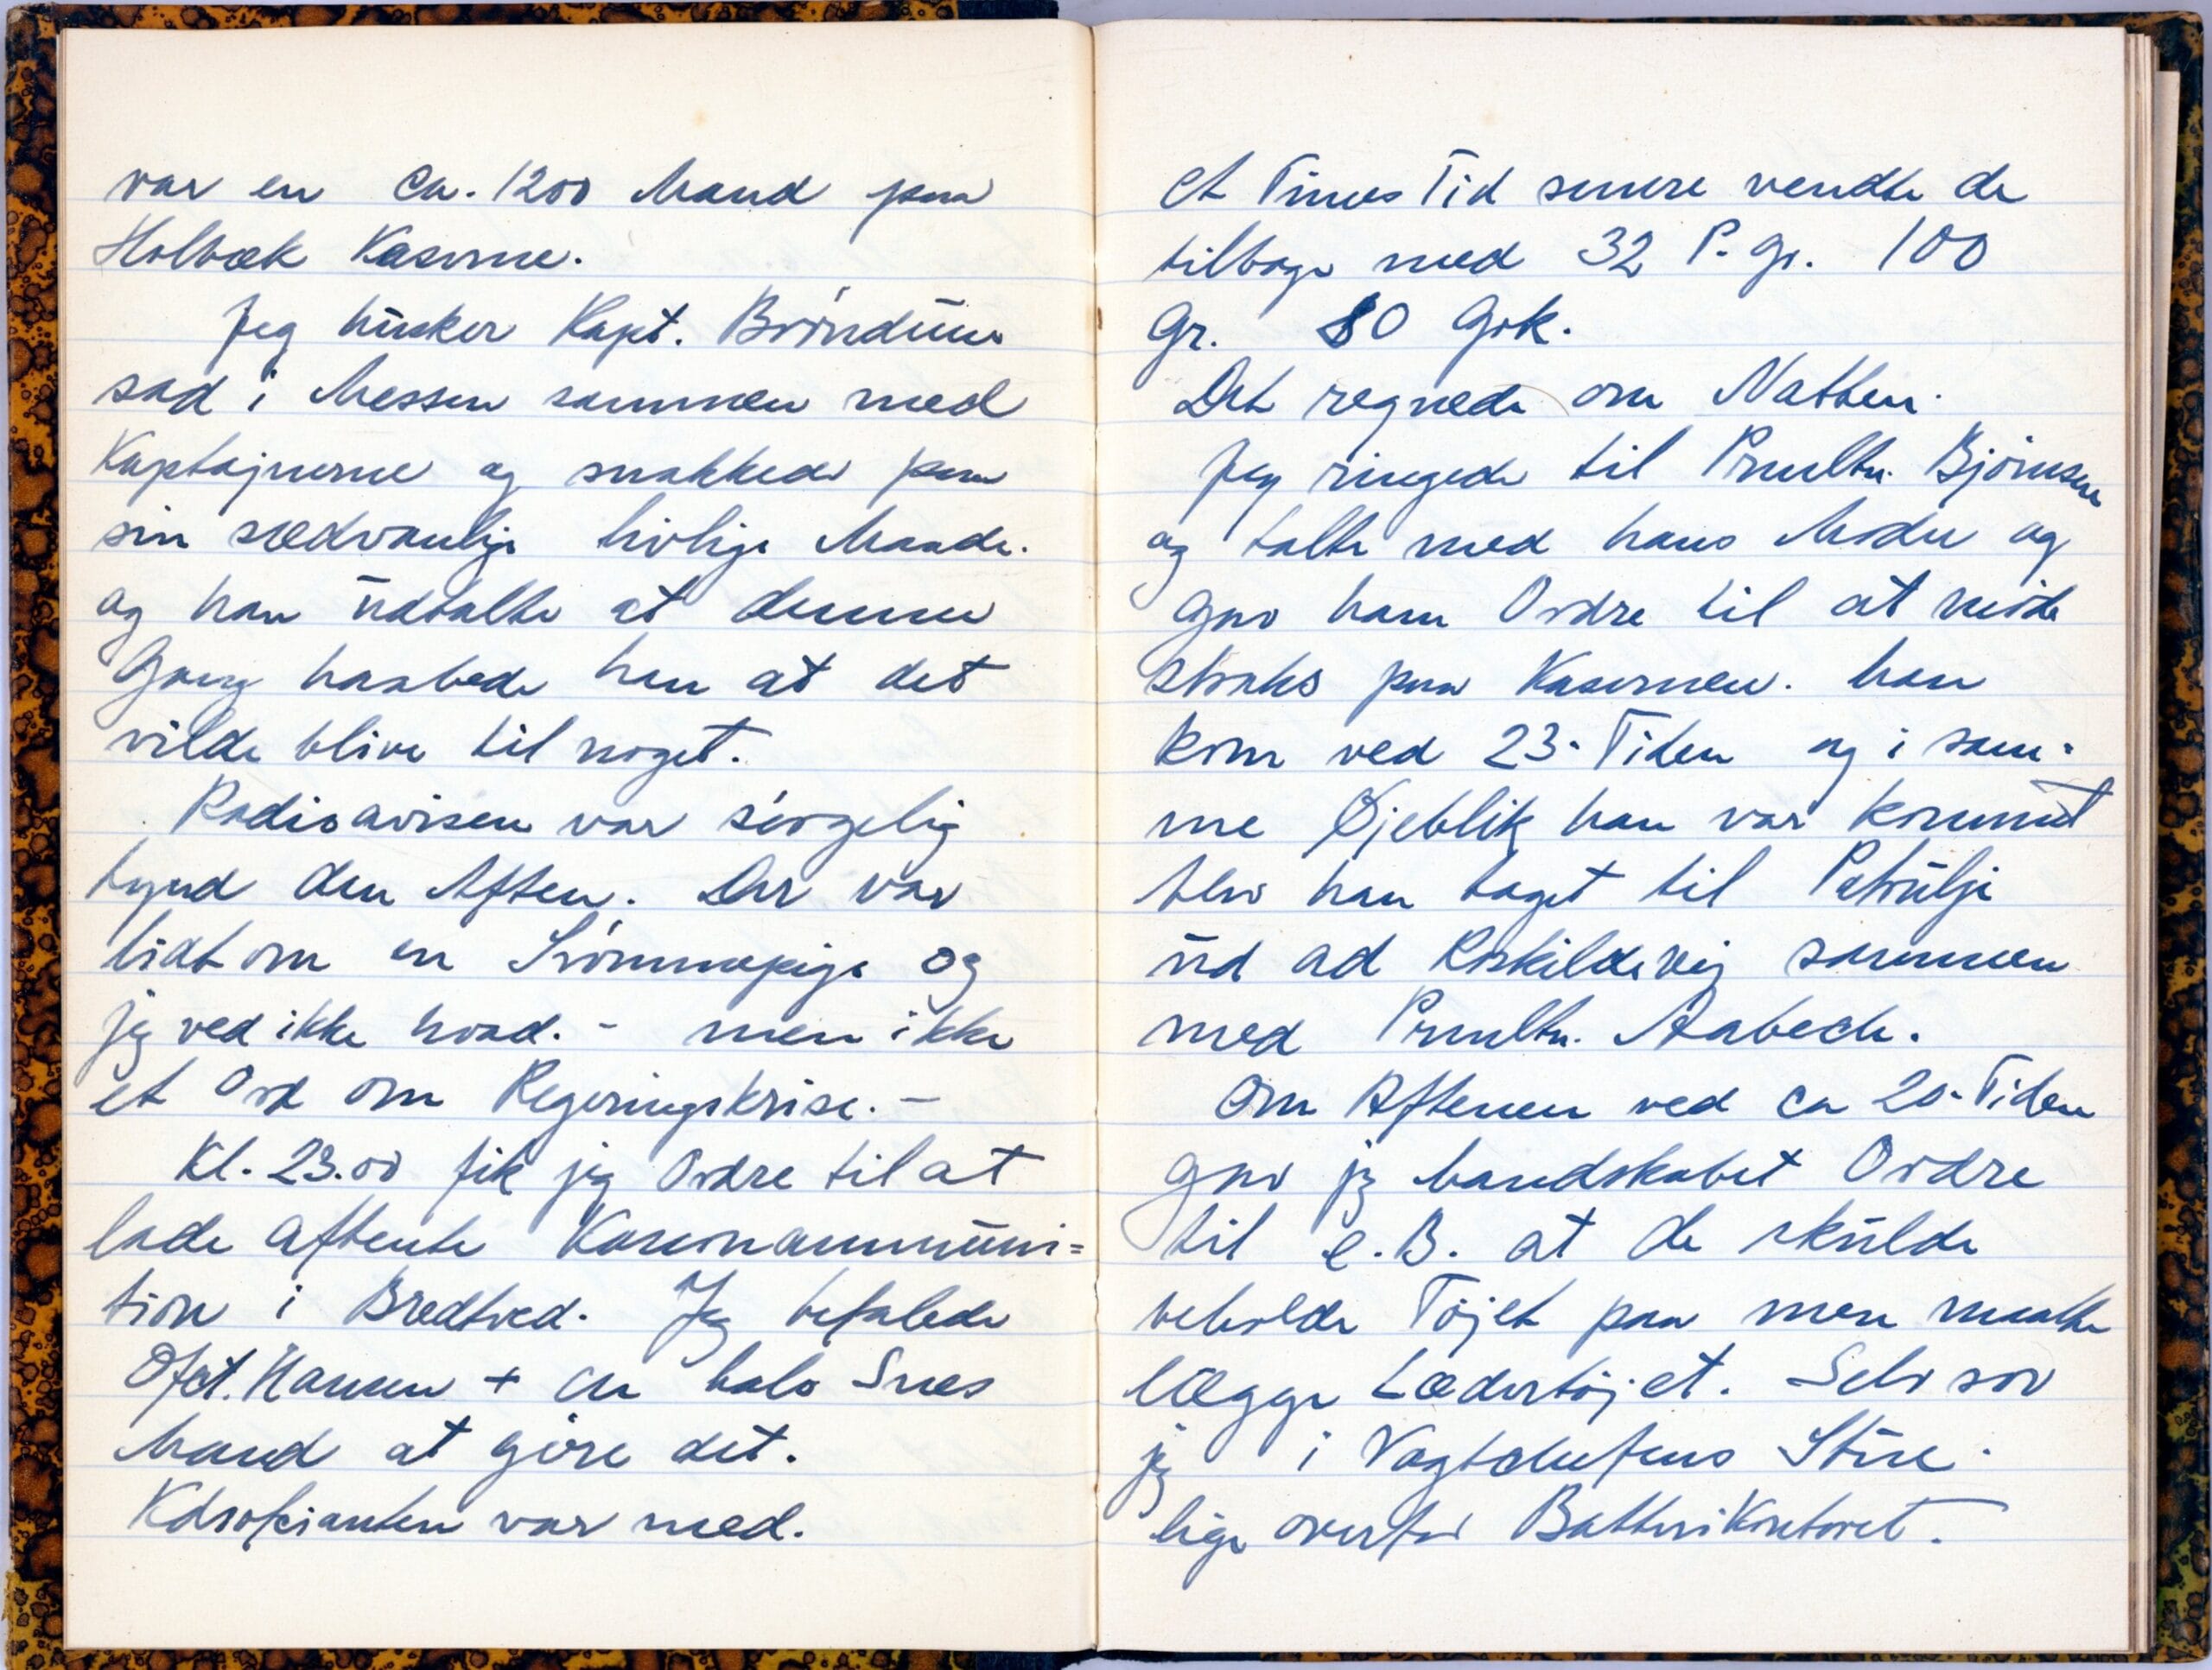 var en ca. 1200 Mand paa
Holbæk Kaserne.
Jeg husker Kapt. Bröndum
sad i Messen sammen med
Kaptajnerne og snakkede paa
sin sædvanlige livlige Maade.
og han udtalte at denne
Gang haabede han at det
vilde blive til noget.
Radioavisen var sörgelig
tynd den Aften. Der var
lidt om en Svömmepige og
jeg ved ikke hvad. - men ikke
et Ord om Regeringskrise. -
Kl. 23.00 fik jeg Ordre til at
lade afhente Kanonammuni=
tion i Bredtved. Jeg befalede
Ofct. Hansen + en halv Snes
Mand at göre det.
Kdrofcianten var med.
et Times Tid senere vendte de
tilbage med 32 P. Gr. 100
Gr. 80 Grk.
Det regnede om Natten.
Jeg ringede til Prmltn. Björnsen
og talte med hans Moder og
gav ham Ordre til at möde
straks paa Kasernen. han
kom ved 23-Tiden og i sam-
me Øjeblik han var kommet
blev han taget til Patrulje
ud ad Roskildevej sammen
med Prmltn. Aabech.
Om Aftenen ved ca 20-Tiden
gav jeg Mandskabet Ordre
til e.B. at de skulde
beholde Töjet paa men maatte
lægge Lædertöjet. Selv sov
jeg i Vagtchefens Stue
lige overfor Batterikontoret.